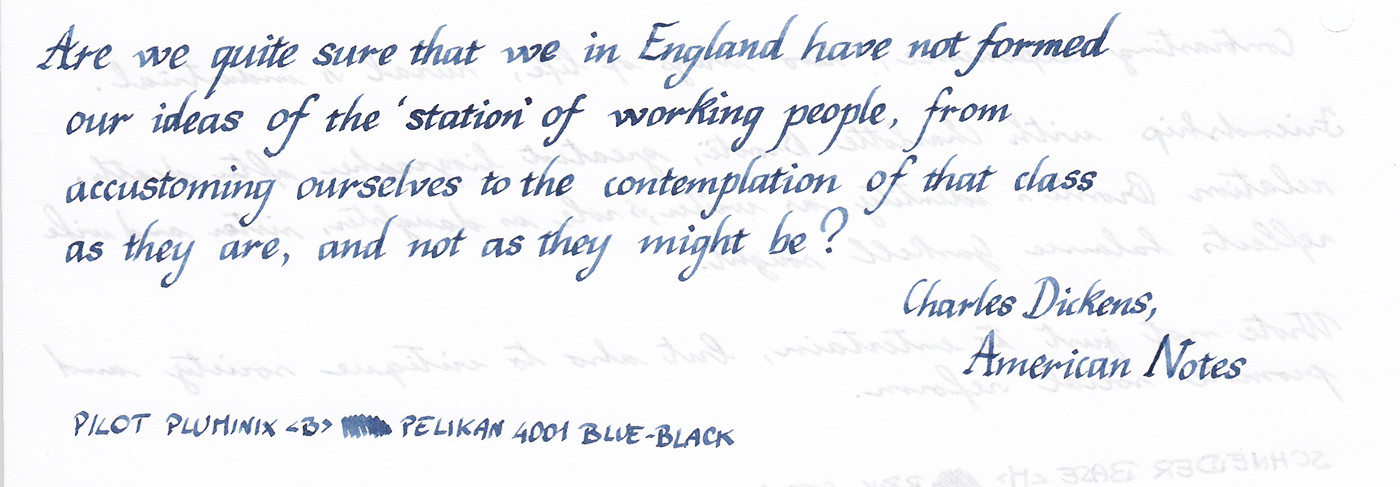 Are we quite sure that we in England have not formed
our ideas of the 'station' of working people, from
accustoming ourselves to the contemplation of that class
as they are, and not as they might be?
Charles Dickens,
American Notes
PILOT PLUMINIX <B> PELIKAN 4001 BLUE-BLACK